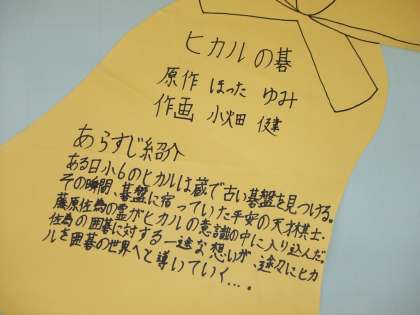 ヒカルの碁
原作 ほった ゆみ
作画 小畑 健
あらすじ紹介
ある日小6のヒカルは蔵で古い碁盤を見つける。
その瞬間、碁盤に宿っていた平安の天才棋士・
藤原佐為の霊がヒカルの意識の中に入り込んだ。
佐為の囲碁に対する一途な想いが、途々にヒカ
ルを囲碁の世界へと導いていく…。